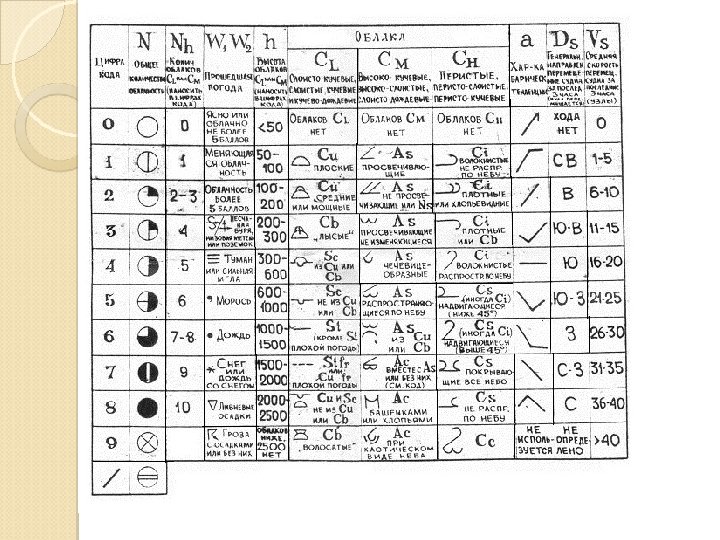 ОБЛАКА
ЦИФРА КОДА
N
ОБЩЕЕ КОЛИЧЕСТВО ОБЛАЧНОСТИ
Nh
КОЛИЧ ОБЛАКОВ CL или CM (НАНОСИТЬ В ЦИФРАХ КОДА)
W1 W2
ПРОШЕДШАЯ ПОГОДА
h
ВЫСОТА ОБЛАКОВ CL или CM (НАНОСИТЬ В ЦИФРАХ КОДА)
CL
СЛОИСТО КУЧЕВЫЕ, СЛОИСТЫЕ, КУЧЕВЫЕ И КУЧЕВО-ДОЖДЕВЫЕ
CM
ВЫСОКО-КУЧЕВЫЕ, ВЫСОКО-СЛОИСТЫЕ, СЛОИСТО ДОЖДЕВЫЕ
CH
ПЕРИСТЫЕ, ПЕРИСТО-СЛОИСТЫЕ, ПЕРИСТО-КУЧЕВЫЕ
a
ХАР-КА БАРИЧЕСК ТЕНДЕНЦИИ
Ds
Vs
СРЕДНЯЯ СКОРОСТЬ
(УЗЛЫ)
0
0
ЯСНО ИЛИ ОБЛАЧНО НЕ БОЛЕЕ 5 БАЛЛОВ
<50
ОБЛАКОВ CL НЕТ
ОБЛАКОВ CM НЕТ
ОБЛАКОВ CH НЕТ
ХОДА НЕТ
0
1
1
МЕНЯЮЩАЯСЯ ОБЛАЧНОСТЬ
50-100
Cu ПЛОСКИЕ
As ПРОСВЕЧИВАЮЩИЕ
Ci ВОЛОКНИСТЫЕ НЕ РАСПР. ПО НЕБУ
СВ
1-5
2
2-3
ОБЛАЧНОСТЬ БОЛЕЕ 5 БАЛЛОВ
100-200
Cu СРЕДНИЕ ИЛИ МОЩНЫЕ
As НЕ ПРОСВЕЧИВАЮЩИЕ ИЛИ Ns
Ci ПЛОТНЫЕ ИЛИ ХЛОПЬЕВИДНЫЕ
В
6-10
3
4
200-300
Cb „ЛЫСЫЕ"
As ПРОСВЕЧИВАЮЩИЕ НЕ ИЗМЕНЯЮЩИЕСЯ
Ci ПЛОТНЫЕ ИЛИ Cb
Ю-В
11-15
4
5
ТУМАН ИЛИ СИЛЬНАЯ МГЛА
300-600
Sc ИЗ Cu ИЛИ Cb
As ЧЕЧЕВИЦЕ-ОБРАЗНЫЕ
Ci ВОЛОКНИСТЫЕ РАСПРОСТР. ПО НЕБУ
Ю
16-20
5
6
МОРОСЬ
600-1000
Sc НЕ ИЗ Cu ИЛИ Cb
As РАСПРОСТРАНЯЮЩИЕСЯ ПО НЕБУ
Cs (ИНОГДА Ci) НАДВИГАЮЩИЕСЯ (НИЖЕ 45°)
Ю-З
21-25
6
7-8
ДОЖДЬ
1000-1500
St (КРОМЕ St ПЛОХОЙ ПОГОДЫ)
As ИЗ Cu ИЛИ Cb
Cs (ИНОГДА Ci) НАДВИГАЮЩИЕСЯ (ВЫШЕ 45°)
З
26-30
7
9
СНЕГ ИЛИ ДОЖДЬ СО СНЕГОМ
1500-2000
St fr ИЛИ Cu fr ПЛОХОЙ ПОГОДЫ
Ac ВМЕСТЕ С As ИЛИ БЕЗ НИХ (СМ. КОД)
Cs ПОКРЫВАЮЩИЕ ВСЕ НЕБО
С-З
31-35
8
10
ЛИВНЕВЫЕ ОСАДКИ
2000-2500
Cu и Sc НЕ ИЗ Cu ИЛИ Cb
Ac БАШЕНКАМИ ИЛИ ХЛОПЬЯМИ
Cs НЕ РАСПР. ПО НЕБУ
С
36-40
9
ГРОЗА С ОСАДКАМИ ИЛИ БЕЗ НИХ
ОБЛАКОВ НИЖЕ 2500 НЕТ
Cb „ВОЛОСАТЫЕ"
Ac ПРИ ХАОТИЧЕСКОМ ВИДЕ НЕБА
Cc
НЕ ИСПОЛЬЗУЕТСЯ
НЕ ОПРЕДЕЛЕНО
>40
/